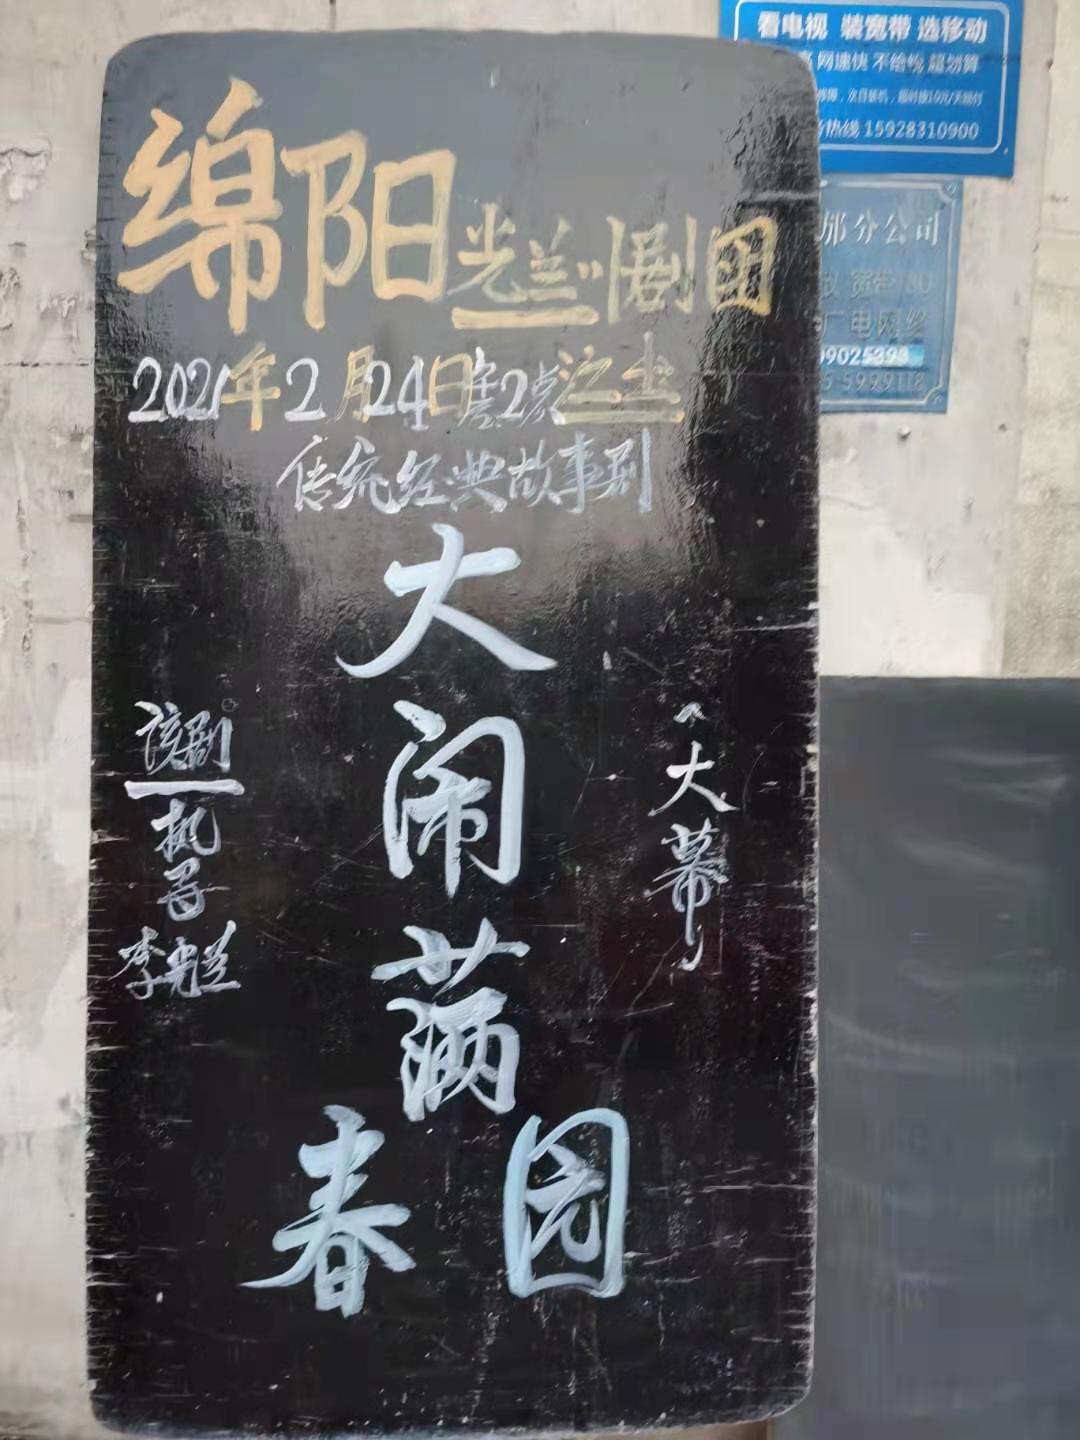 绵阳光兰剧团
2021年2月24日准2点演出
传统经典故事剧
大闹满春园
大幕
该剧
执笔
李光兰
看电视 装宽带 选移动
网速快 不给钱 超划算
热线 15928310900
部分公司
宽带
广电网络
09025398
5999118